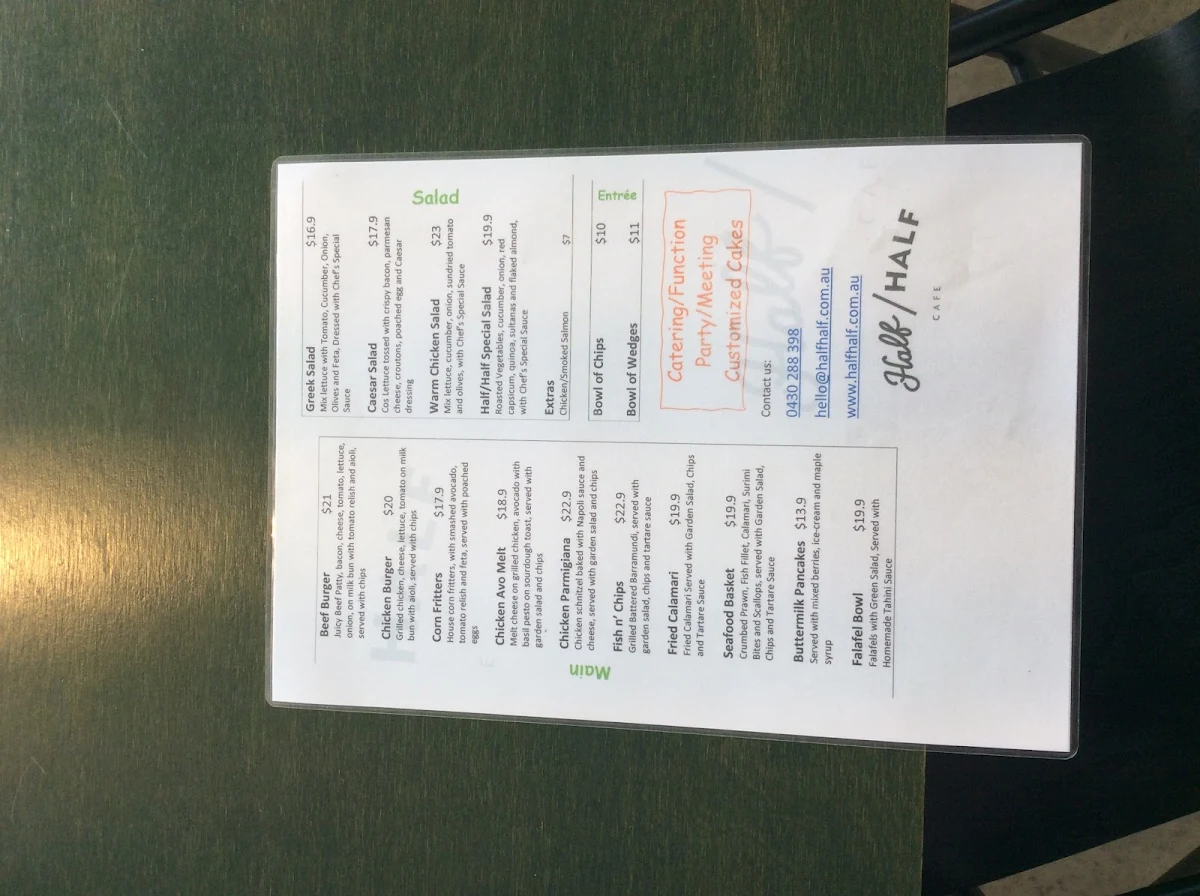 Main
Beef Burger $21
Juicy Beef Patty, bacon, cheese, tomato, lettuce,
onion, on milk bun with tomato relish and aioli,
served with chips
Chicken Burger $20
Grilled chicken, cheese, lettuce, tomato on milk
bun with aioli, served with chips
Corn Fritters $17.9
House corn fritters, with smashed avocado,
tomato relish and feta, served with poached
eggs
Chicken Avo Melt $18.9
Melt cheese on grilled chicken, avocado with
basil pesto on sourdough toast, served with
garden salad and chips
Chicken Parmigiana $22.9
Chicken schnitzel baked with Napoli sauce and
cheese, served with garden salad and chips
Fish n' Chips $22.9
Grilled Battered Barramundi, served with
garden salad, chips and tartare sauce
Fried Calamari $19.9
Fried Calamari Served with Garden Salad, Chips
and Tartare Sauce
Seafood Basket $19.9
Crumbed Prawn, Fish Fillet, Calamari, Surimi
Bites and Scallops, served with Garden Salad,
Chips and Tartare Sauce
Buttermilk Pancakes $13.9
Served with mixed berries, ice-cream and maple
syrup
Falafel Bowl $19.9
Falafels with Green Salad, Served with
Homemade Tahini Sauce
Greek Salad $16.9
Mix lettuce with Tomato, Cucumber, Onion,
Olives and Feta, Dressed with Chef's Special
Sauce
Caesar Salad $17.9
Cos Lettuce tossed with crispy bacon, parmesan
cheese, croutons, poached egg and Caesar
dressing
Salad
Warm Chicken Salad $23
Mix lettuce, cucumber, onion, sundried tomato
and olives, with Chef's Special Sauce
Half/Half Special Salad $19.9
Roasted Vegetables, cucumber, onion, red
capsicum, quinoa, sultanas and flaked almond,
with Chef's Special Sauce
Extras
Chicken/Smoked Salmon $7
Bowl of Chips $10
Entrée
Bowl of Wedges $11
Catering/Function
Party/Meeting
Customized Cakes
Contact us:
0430 288 398
hello@halfhalf.com.au
www.halfhalf.com.au
Half/HALF
CAFE